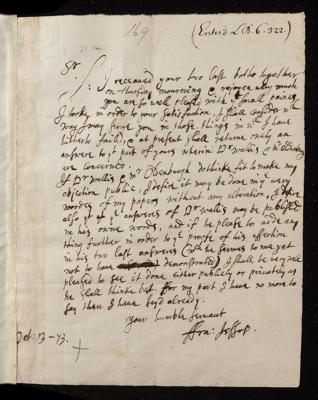 169
(Enterd L.B. 6. 322.)
Sr
I received your two last both together
on thursday mourning & rejoyce very much
you are so well pleased with ye small paines
I tooke in order to your satisfaction, I shall consider wt
way I may serve you in those things in wch I have
hitherto faild, & at present shall returne only an
answere to yt part of yours wherein Dr Wallis & Mr Oldenburg
are concerned.
If Dr Wallis & Mr Oldenburgh do thinke fit to make my
objection public, I desire it may be done in ye very
words of my papers without any alteration, I desire
also yt ye answeres of Dr Wallis may be publish'd
in his owne words, and if he please to adde any
thing further in order to ye proofe of his assertion
in his two last answeres (wch he seemes to me yet
not to have demonstrated) I shall be very well
pleased to see it done either publicly or privately as
he shall thinke best. for my part I have no more to
say then I have sayd already.
Your humble servant
Fra: Jessop.
Oct: 13 -73.